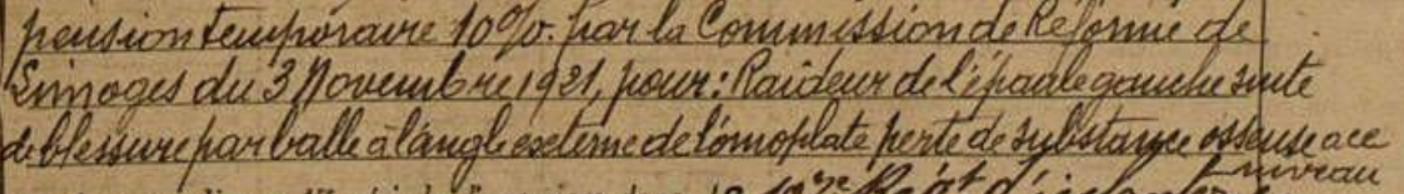 pension temporaire 10%. par la Commission de Réforme de
Limoges du 3 Novembre 1921, pour: Raideur de l'épaule gauche suite
de blessure par balle à l'angle externe de l'omoplate perte de substance osseuse au
niveau